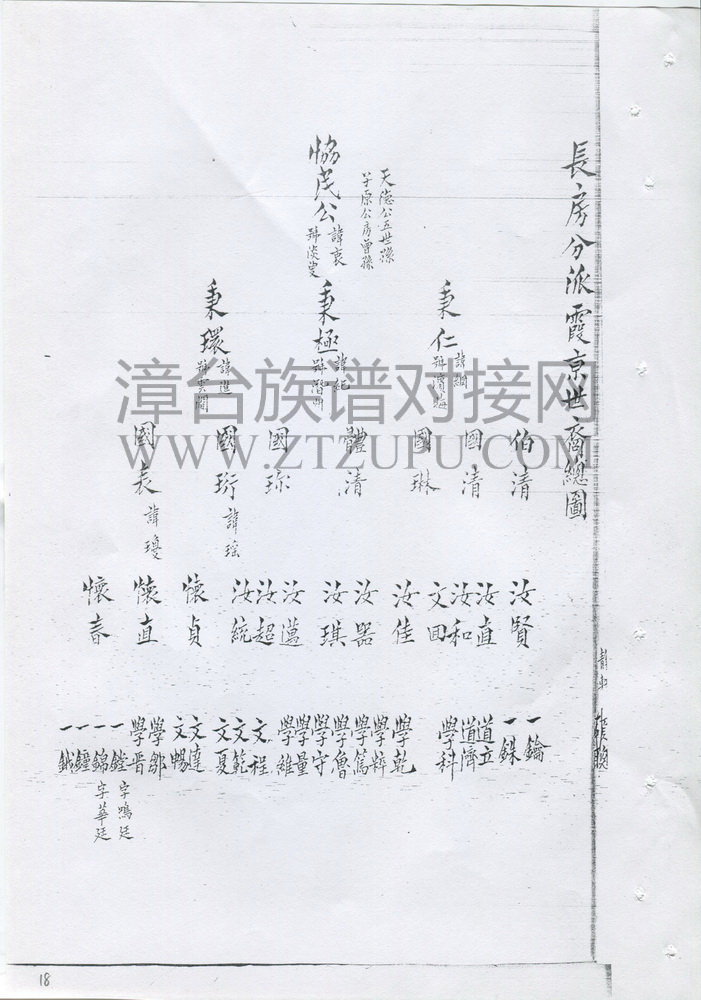 長房分派霞京世裔總圖
天德公五世孫
公房曾孫
協茂公
諱衷
秉仁
秉極
諱紀
秉環
諱進
號雲閣
伯清
國清
國琳
體清
國珎
國珩
諱瑤
國表
諱瓊
汝賢
汝直
汝和
文回
汝佳
汝器
汝琪
汝邁
汝超
汝統
懷貞
懷直
懷春
一鑰
一銖
道立
道濟
學科
學乾
學粹
學篤
學魯
學守
學量
學雒
文程
文範
文夏
文達
文暢
學鄒
學晋
一鏜
字鳴廷
一錦
字華廷
一鏗
一鉞
漳台族谱对接网
WWW.ZTZUPU.COM
18